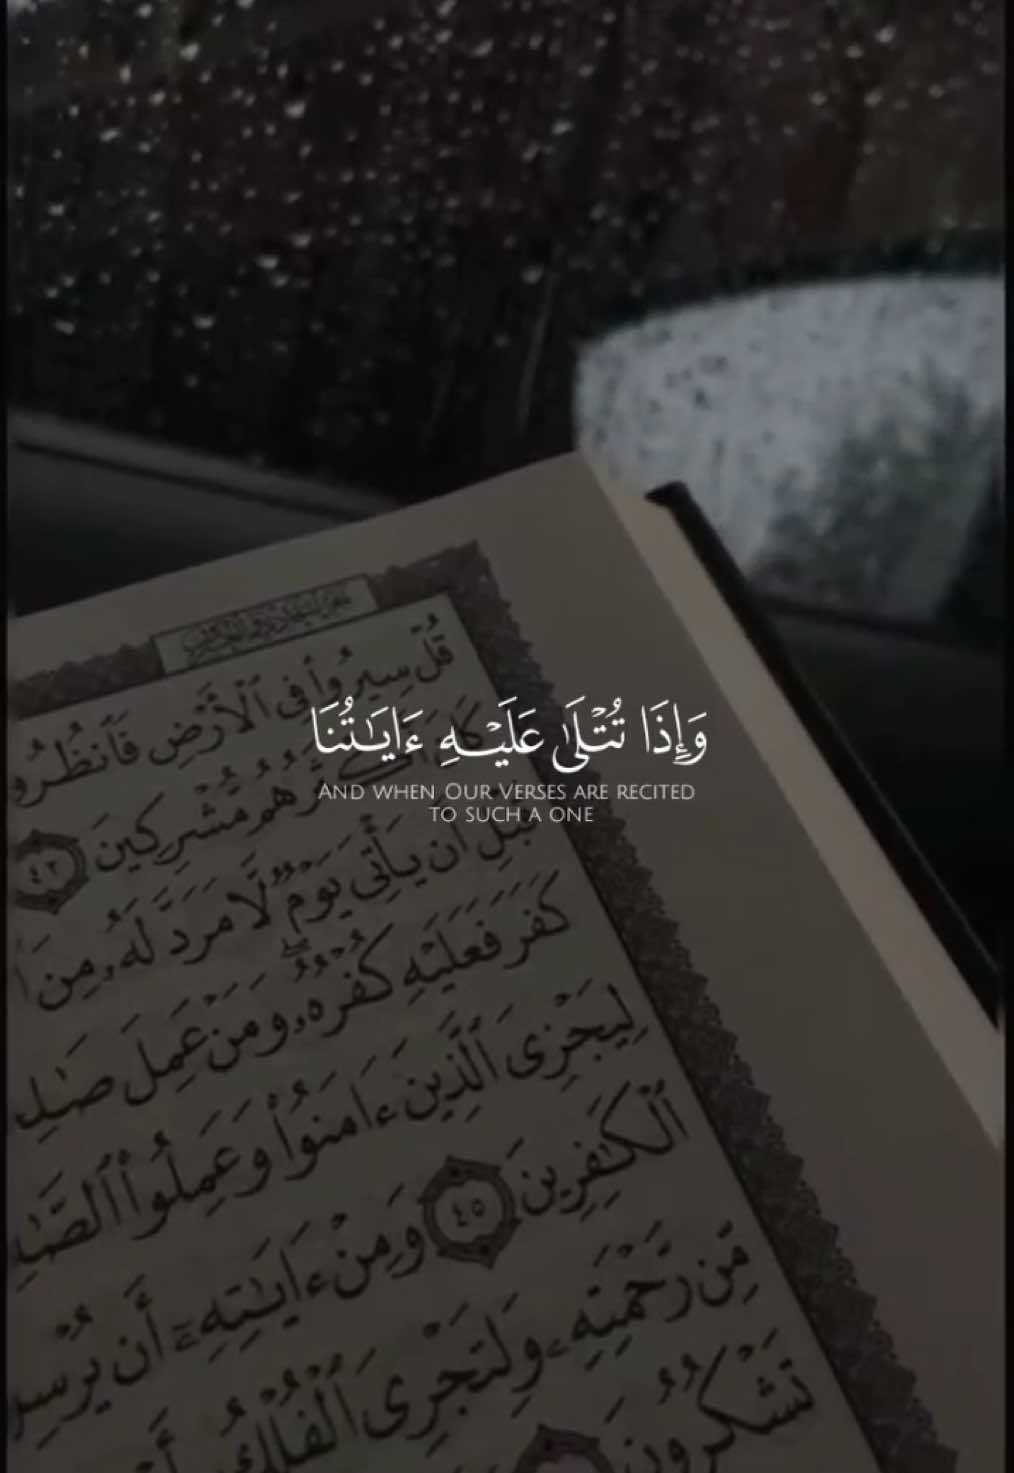 قُلْ سِيرُوا۟ فِى ٱلْأَرْضِ فَٱنظُرُو
وَإِذَا تُتْلَىٰ عَلَيْهِ ءَايَـٰتُنَا
AND WHEN OUR VERSES ARE RECITED
TO SUCH A ONE
هُم مُّشْرِكِينَ ٤٢
أَن يَأْتِىَ يَوْمٌ لَّا مَرَدَّ لَهُۥ مِنَ
كَفَرَ فَعَلَيْهِ كُفْرُهُۥ وَمَنْ عَمِلَ صَـٰلِ
لِيَجْزِىَ ٱلَّذِينَ ءَامَنُوا۟ وَعَمِلُوا۟ ٱلصَّـٰلِ
ٱلْكَـٰفِرِينَ ٤٥ وَمِنْ ءَايَـٰتِهِۦٓ أَن يُرْسِ
مِّن رَّحْمَتِهِۦ وَلِتَجْرِىَ ٱلْفُلْكُ
تَشْكُرُونَ